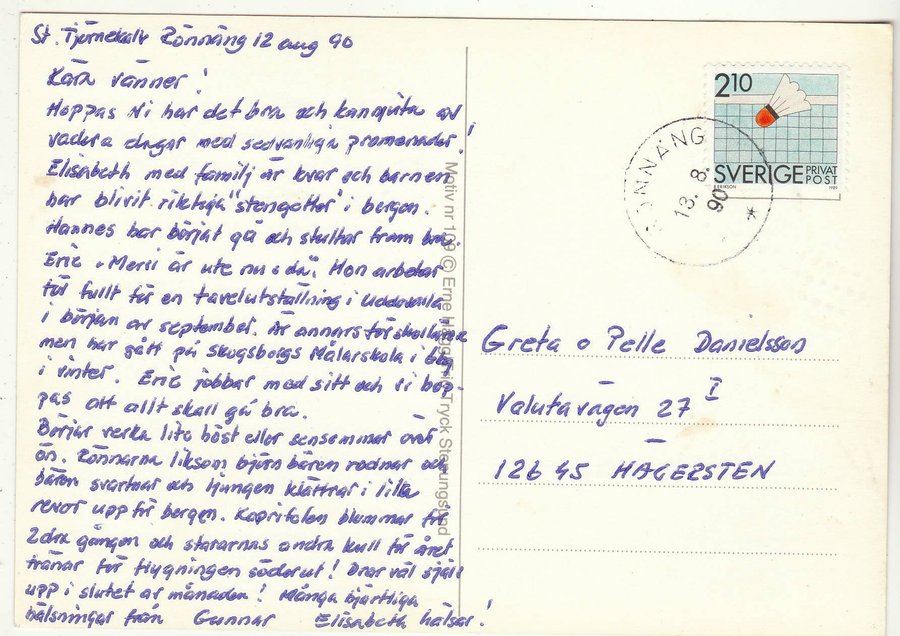 St. Tjörnekalv Rönnäng 12 aug 90
Kära vänner!
Hoppas Ni har det bra och kan njuta av
vackra dagar med sedvanliga promenader!
Elisabeth med familj är kvar och barnen
har blivit riktiga "stengetter" i bergen.
Hannes har börjat gå och stultar fram bra.
Eric o Merci är ute nu o då. Hon arbetar
för fullt för en tavelutställning i Uddevalla
i början av september. Är annars förskollärare
men har gått på Skogsborgs Målarskola i
i vinter. Eric jobbar med sitt och vi hop-
pas att allt skall gå bra.
Börjar verka lite höst eller sensommar över
ön. Rönnarna liksom björnbären rodnar och
bären svartnar och ljungen klättrar i lilla
revor upp för bergen. Kaprifolen blommar för
2dra gången och stararnas andra kull för året
tränar för flygningen söderut! Drar väl själv
upp i slutet av månaden! Många hjärtliga
hälsningar från Gunnar Elisabeth hälsar!
Motiv nr 109 © Erne Tryck Stenungsund
2 10
SVERIGE PRIVAT POST
B. ERIKSON 1989
RÖNNÄNG
13. 8. 90
*
Greta o Pelle Danielsson
Valutavägen 27 I
126 45 HÄGERSTEN